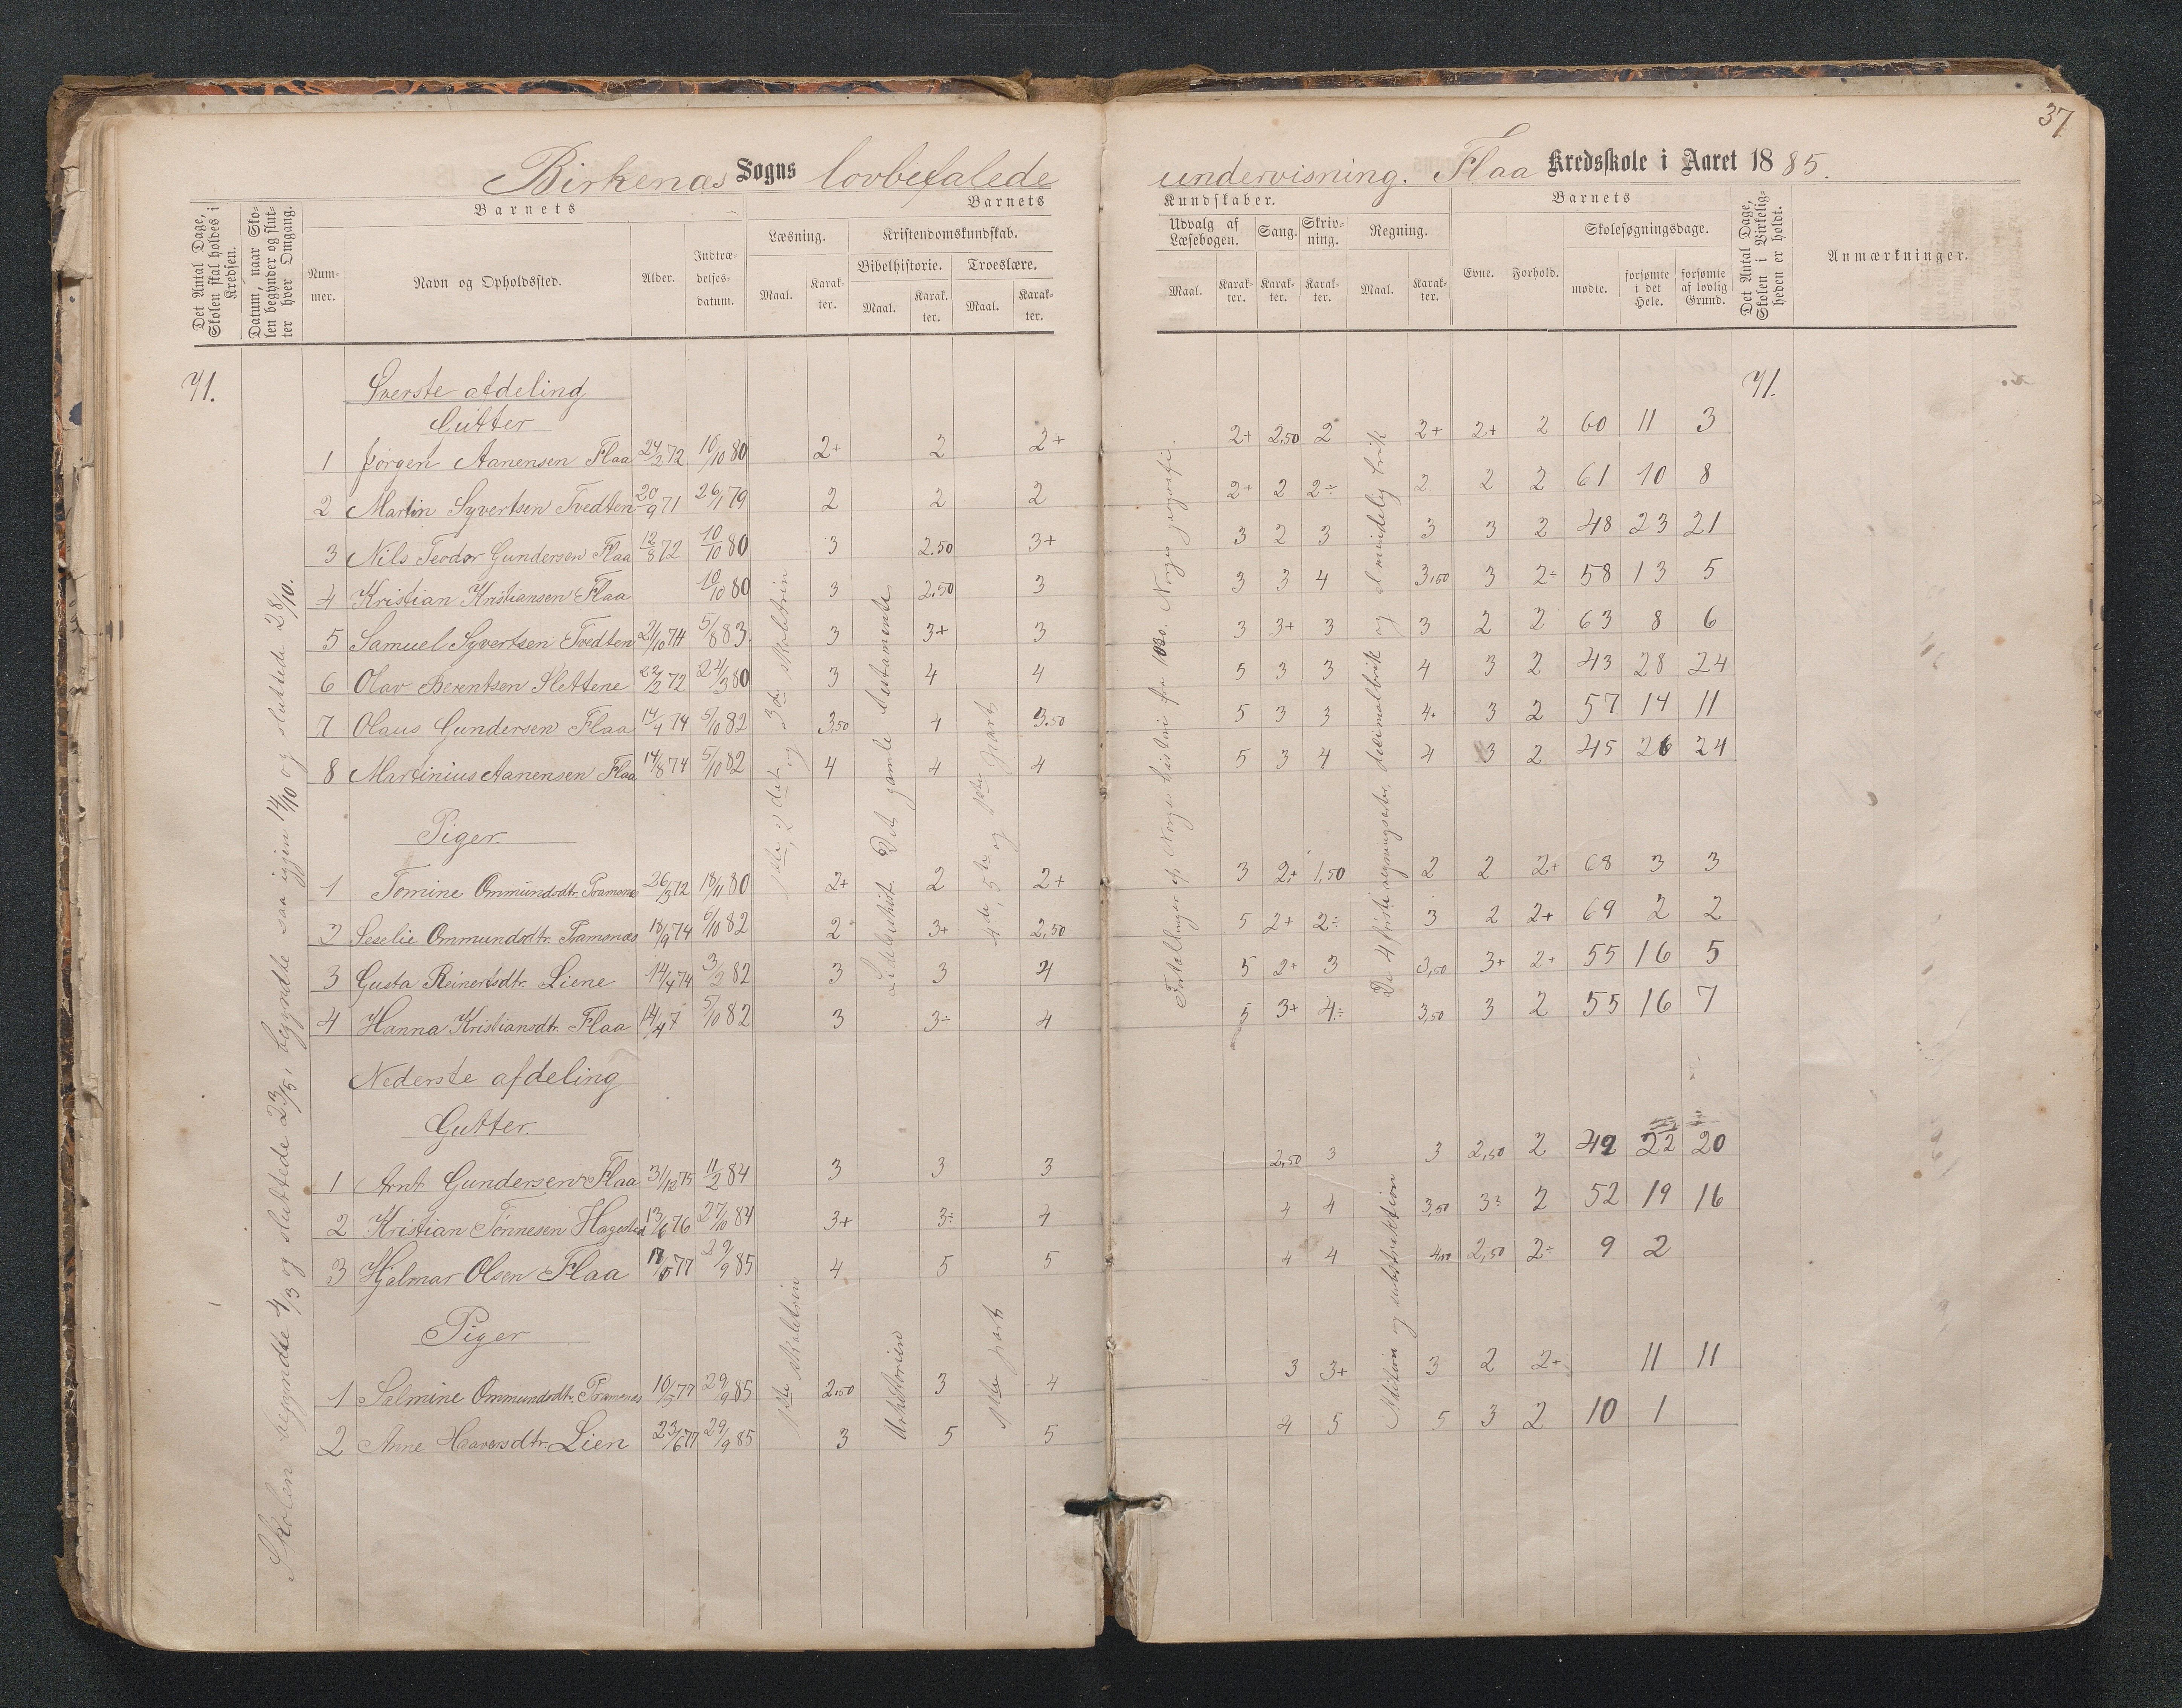 37
Birkenæs Sogns lovbefalede undervisning. Flaa Kredsskole i Aaret 1885.
Det Antal Dage, Skolen skal holdes i Kredsen.
Datum, naar Skolen begynder og slutter hver Omgang.
Barnets
Nummer.
Navn og Opholdssted.
Alder.
Indtrædelsesdatum.
Barnets Kundskaber.
Læsning.
Maal.
Karakter.
Kristendomskundskab.
Bibelhistorie.
Maal.
Karakter.
Troeslære.
Maal.
Karakter.
Udvalg af Læsebogen.
Maal.
Karakter.
Sang.
Karakter.
Skrivning.
Karakter.
Regning.
Maal.
Karakter.
Barnets
Evne.
Forhold.
Skolesøgningsdage.
mødte.
forsømte i det Hele.
forsømte af lovlig Grund.
Det Antal Dage, Skolen i Virkeligheden er holdt.
Anmærkninger.
71.
71.
Skolen begyndte 4/3 og sluttede 23/5, begyndte saa igjen 14/10 og sluttede 28/10.
Øverste afdeling
Gutter
1 Jørgen Aanensen Flaa 24/2 72 10/10 80 2+ 2 2+ 2+ 2,50 2 2+ 2+ 2 60 11 3
2 Martin Syvertsen Tvedten 20/9 71 26/1 79 2 2 2 2+ 2 2÷ 2 2 2 61 10 8
3 Nils Teodor Gundersen Flaa 12/8 72 10/10 80 3 2.50 3+ 3 2 3 3 3 2 48 23 21
4 Kristian Kristiansen Flaa 10/10 80 3 2.50 3 3 3 4 3,50 3 2÷ 58 13 5
5 Samuel Syvertsen Tvedten 21/10 74 5/8 83 3 3+ 3 3 3+ 3 3 2 2 63 8 6
6 Olav Berentsen Slettene 22/2 72 24/3 80 3 4 4 5 3 3 4 3 2 43 28 24
7 Olaus Gundersen Flaa 14/4 74 5/10 82 3,50 4 3.50 5 3 3 4+ 3 2 57 14 11
8 Martinius Aanensen Flaa 14/8 74 5/10 82 4 4 4 5 3 4 4 3 2 45 26 24
1ste, 2det og 3de skoletrin
Lidelseshist. Det gamle testamente
4de, 5te og 1ste part
Fortællinger af Norges historie fra 1030. Norges geografi.
De 4 første regningsarter, decimalbrøk og almindelig brøk
Piger.
1 Tomine Ommundsdtr. Tramsnes 26/3 72 18/11 80 2+ 2 2+ 3 2+ 1,50 2 2 2+ 68 3 3
2 Seselie Ommundsdtr. Tramsnæs 18/9 74 6/10 82 2 3+ 2,50 5 2+ 2÷ 3 2 2+ 69 2 2
3 Gusta Reinertsdtr. Liene 14/4 74 3/2 82 3 3 4 5 2+ 3 3,50 3+ 2+ 55 16 5
4 Hanna Kristiansdtr. Flaa 14/4 7 5/10 82 3 3÷ 4 5 3+ 4÷ 3,50 3 2 55 16 7
Nederste afdeling
Gutter.
1 Arnt Gundersen Flaa 31/12 75 11/2 84 3 3 3 2,50 3 3 2,50 2 49 22 20
2 Kristian Tønnesen Hagestad 13/6 76 27/10 84 3+ 3÷ 4 4 4 3,50 3÷ 2 52 19 16
3 Hjalmar Olsen Flaa 77 29/9 85 4 5 5 4 4 4,50 2,50 2÷ 9 2
1ste skoletrin
Urhistorien
1ste part
Addition og subtraktion
Piger
1 Salmine Ommundsdtr. Tramsnæs 77 29/9 85 2,50 3 4 3 3+ 3 2 2+ 11 11
2 Anne Haavorsdtr. Lien 23/6 77 29/9 85 3 5 5 4 5 5 3 2 10 1